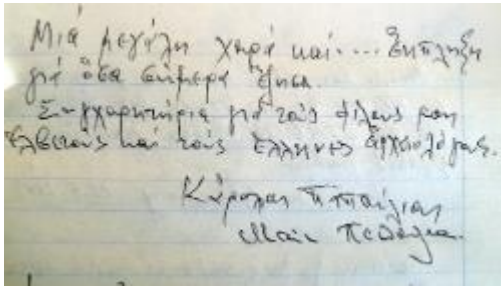 Μιά μεγάλη χαρά καί.... ἔκπληξη
γιά ὅσα σήμερα ἔζησα.
Συγχαρητήρια γιά τούς φίλους μου
Ἑλβετούς καί τούς Ἕλληνες ἀρχαιολόγους.
Κάρολος Παπούλιας
Μαίη Παπούλια.